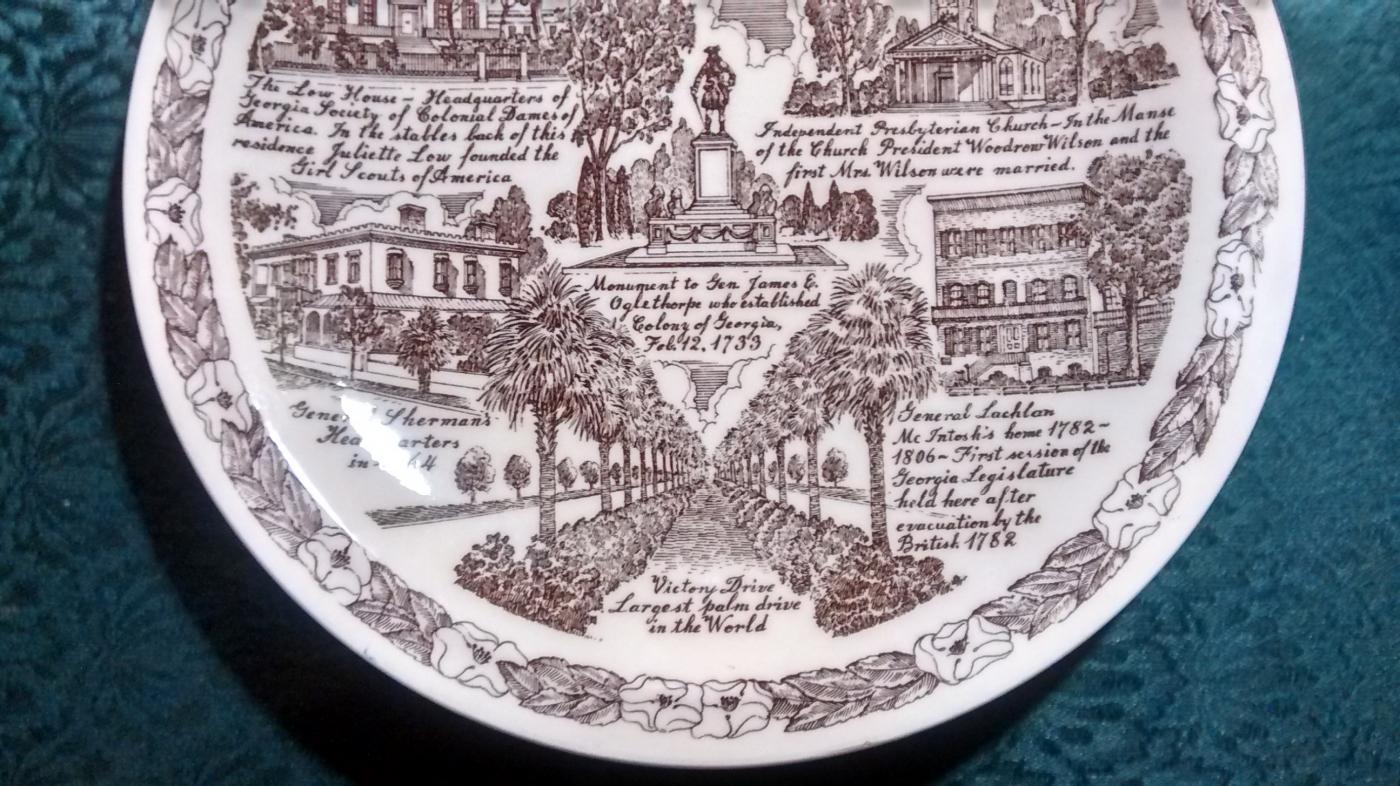 The Low House - Headquarters of
Georgia Society of Colonial Dames of
America. In the stables back of this
residence Juliette Low founded the
Girl Scouts of America
Independent Presbyterian Church - In the Manse
of the Church President Woodrow Wilson and the
first Mrs. Wilson were married.
Monument to Gen. James E.
Oglethorpe who established
Colony of Georgia,
Feb. 12, 1733
General Sherman's
Headquarters
in
General Lachlan
Mc Intosh's home 1782~
1806~ First session of the
Georgia Legislature
held here after
evacuation by the
British 1782
Victory Drive
Largest palm drive
in the World